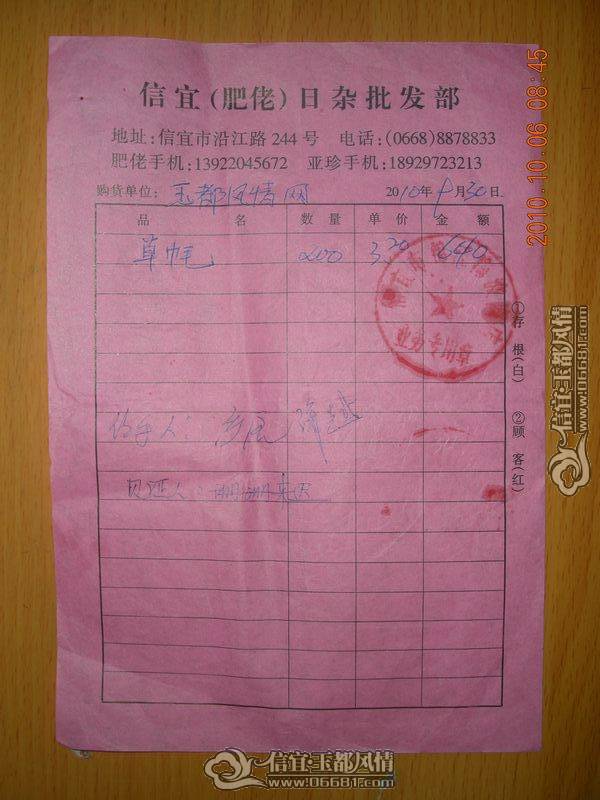 信宜(肥佬)日杂批发部
地址:信宜市沿江路244号 电话:(0668)8878833
肥佬手机:13922045672 亚珍手机:18929723213
购货单位: 玉都风情网 2010年9月30日
品名 数量 单价 金额
草帽 200 3.20 640
经手人:
见证人:
①存根(白) ②顾客(红)
2010.10.06 08:45
信宜·玉都风情
www.06681.com
信宜·玉都风情
www.06681.com